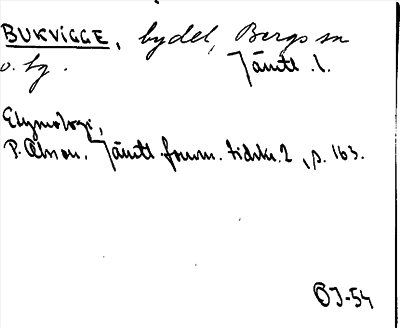 BUKVIGGE, bydel, Bergs sn
o. tg. Jämtl. l.
Etymologi,
P. Olsson. Jämtl. fornm. tidskr. 2, s. 163.
OJ-54